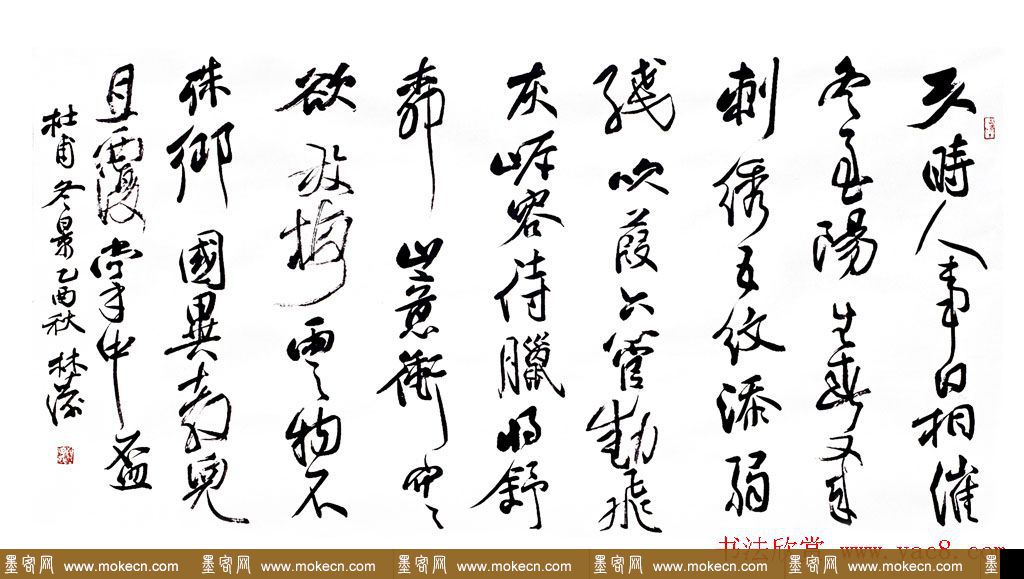 天時人事日相催
冬至陽生春又来
刺绣五纹添弱
綫吹葭六管動飛
灰岸容待臘将舒
柳山意衝寒
欲放梅雲物不
殊鄉國異教兒
且覆掌中盃
杜甫冬景乙酉秋林
书法欣赏 www.yac8.com
墨客网 www.mokecn.com 墨客网 www.mokecn.com 墨客网 www.mokecn.com 墨客网 www.mokecn.com 墨客网 www.mokecn.com 墨客网